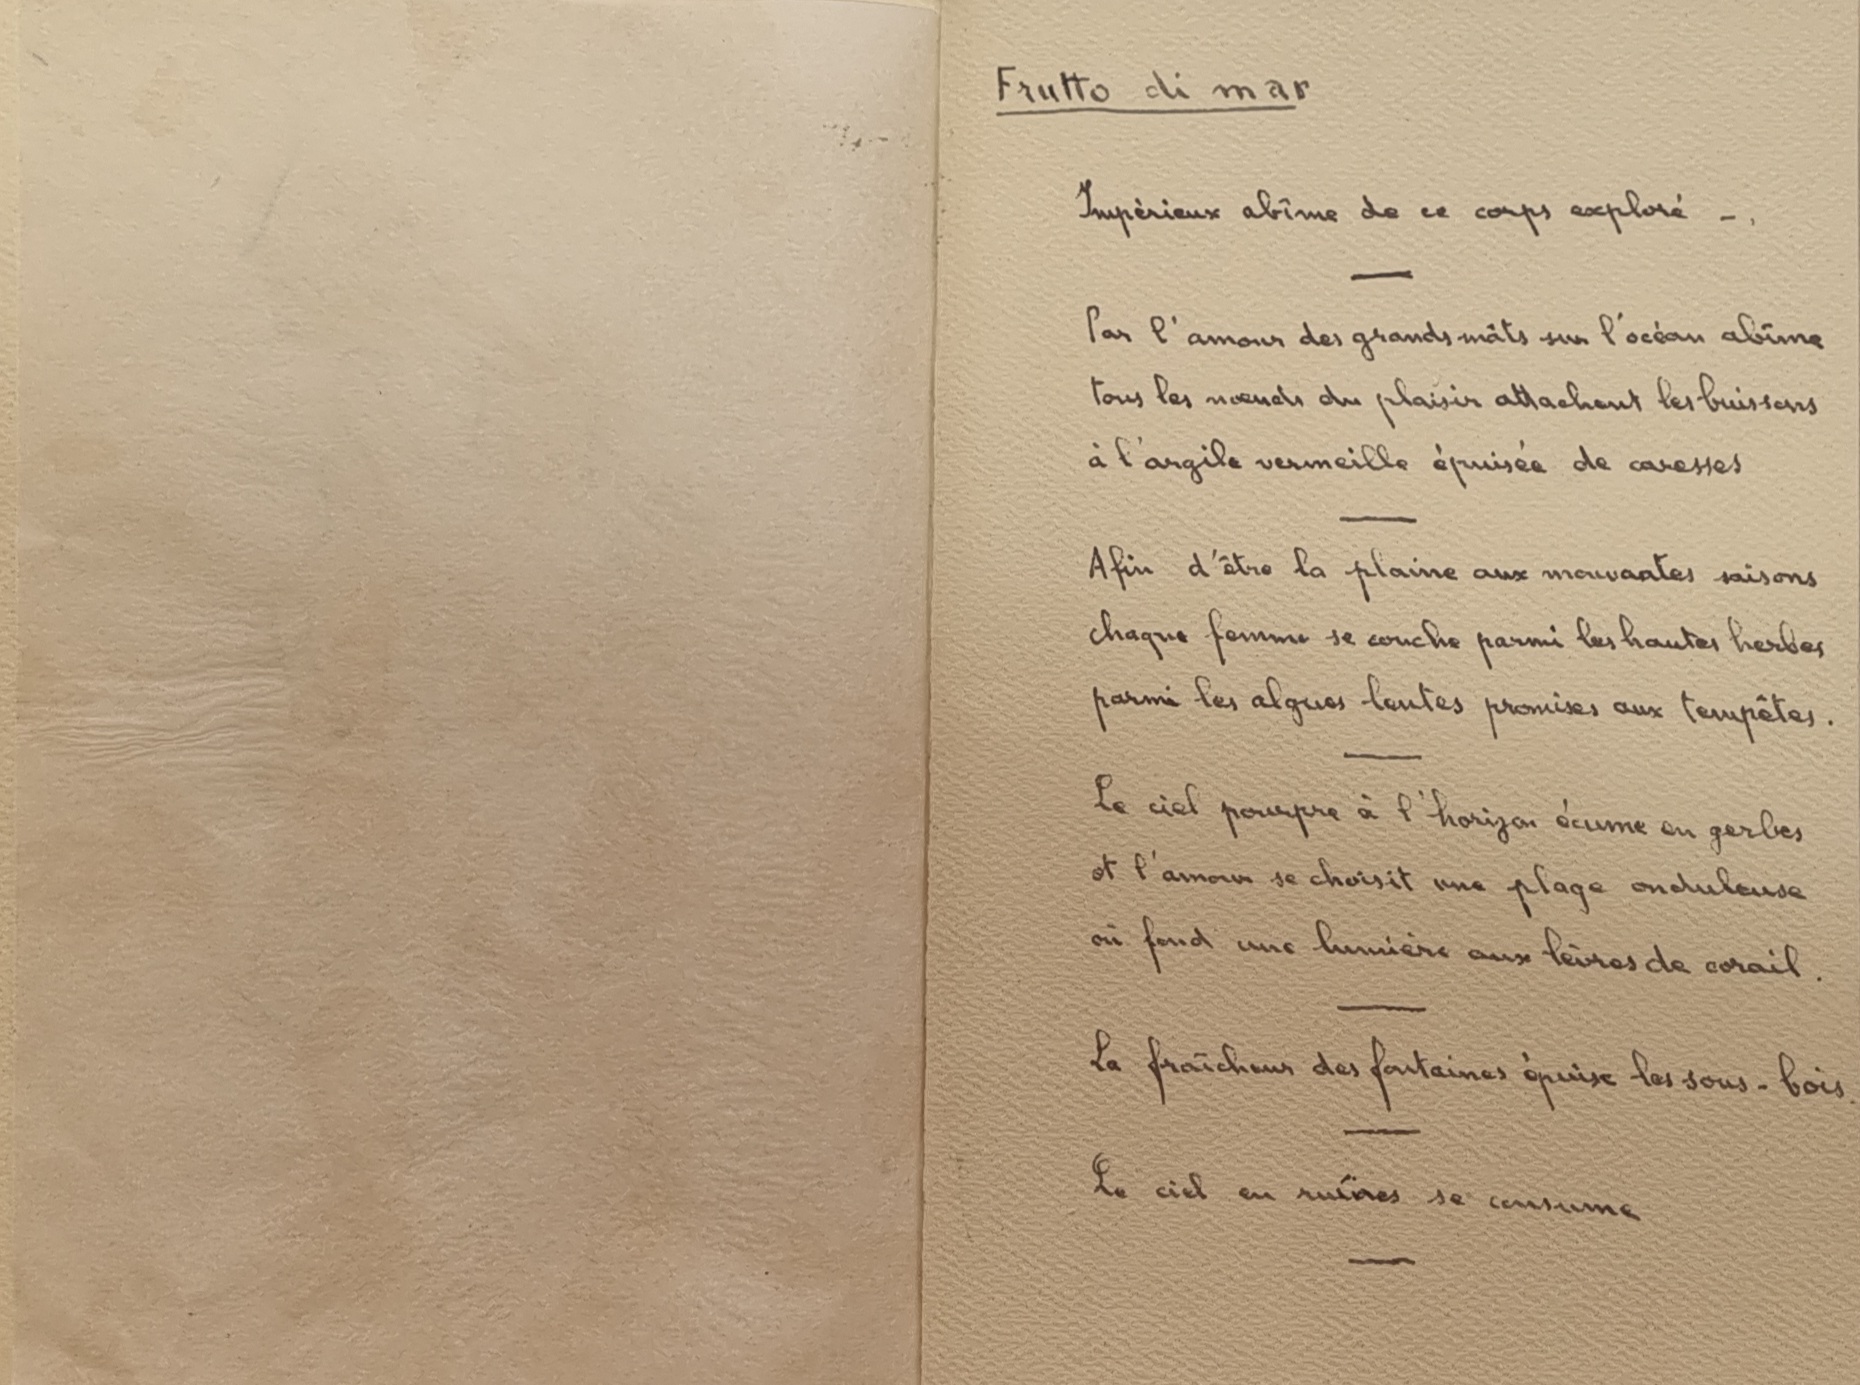 Frutto di mar
Impérieux abîme de ce corps exploré -.
Par l'amour des grands mâts sur l'océan abîme
tous les nœuds du plaisir attachent les buissons
à l'argile vermeille épuisée de caresses
Afin d'être la plaine aux mouvantes saisons
chaque femme se couche parmi les hautes herbes
parmi les algues lentes promises aux tempêtes.
Le ciel pourpre à l'horizon écume en gerbes
et l'amour se choisit une plage onduleuse
où fond une lumière aux lèvres de corail.
La fraîcheur des fontaines épuise les sous-bois.
Le ciel en ruines se consume